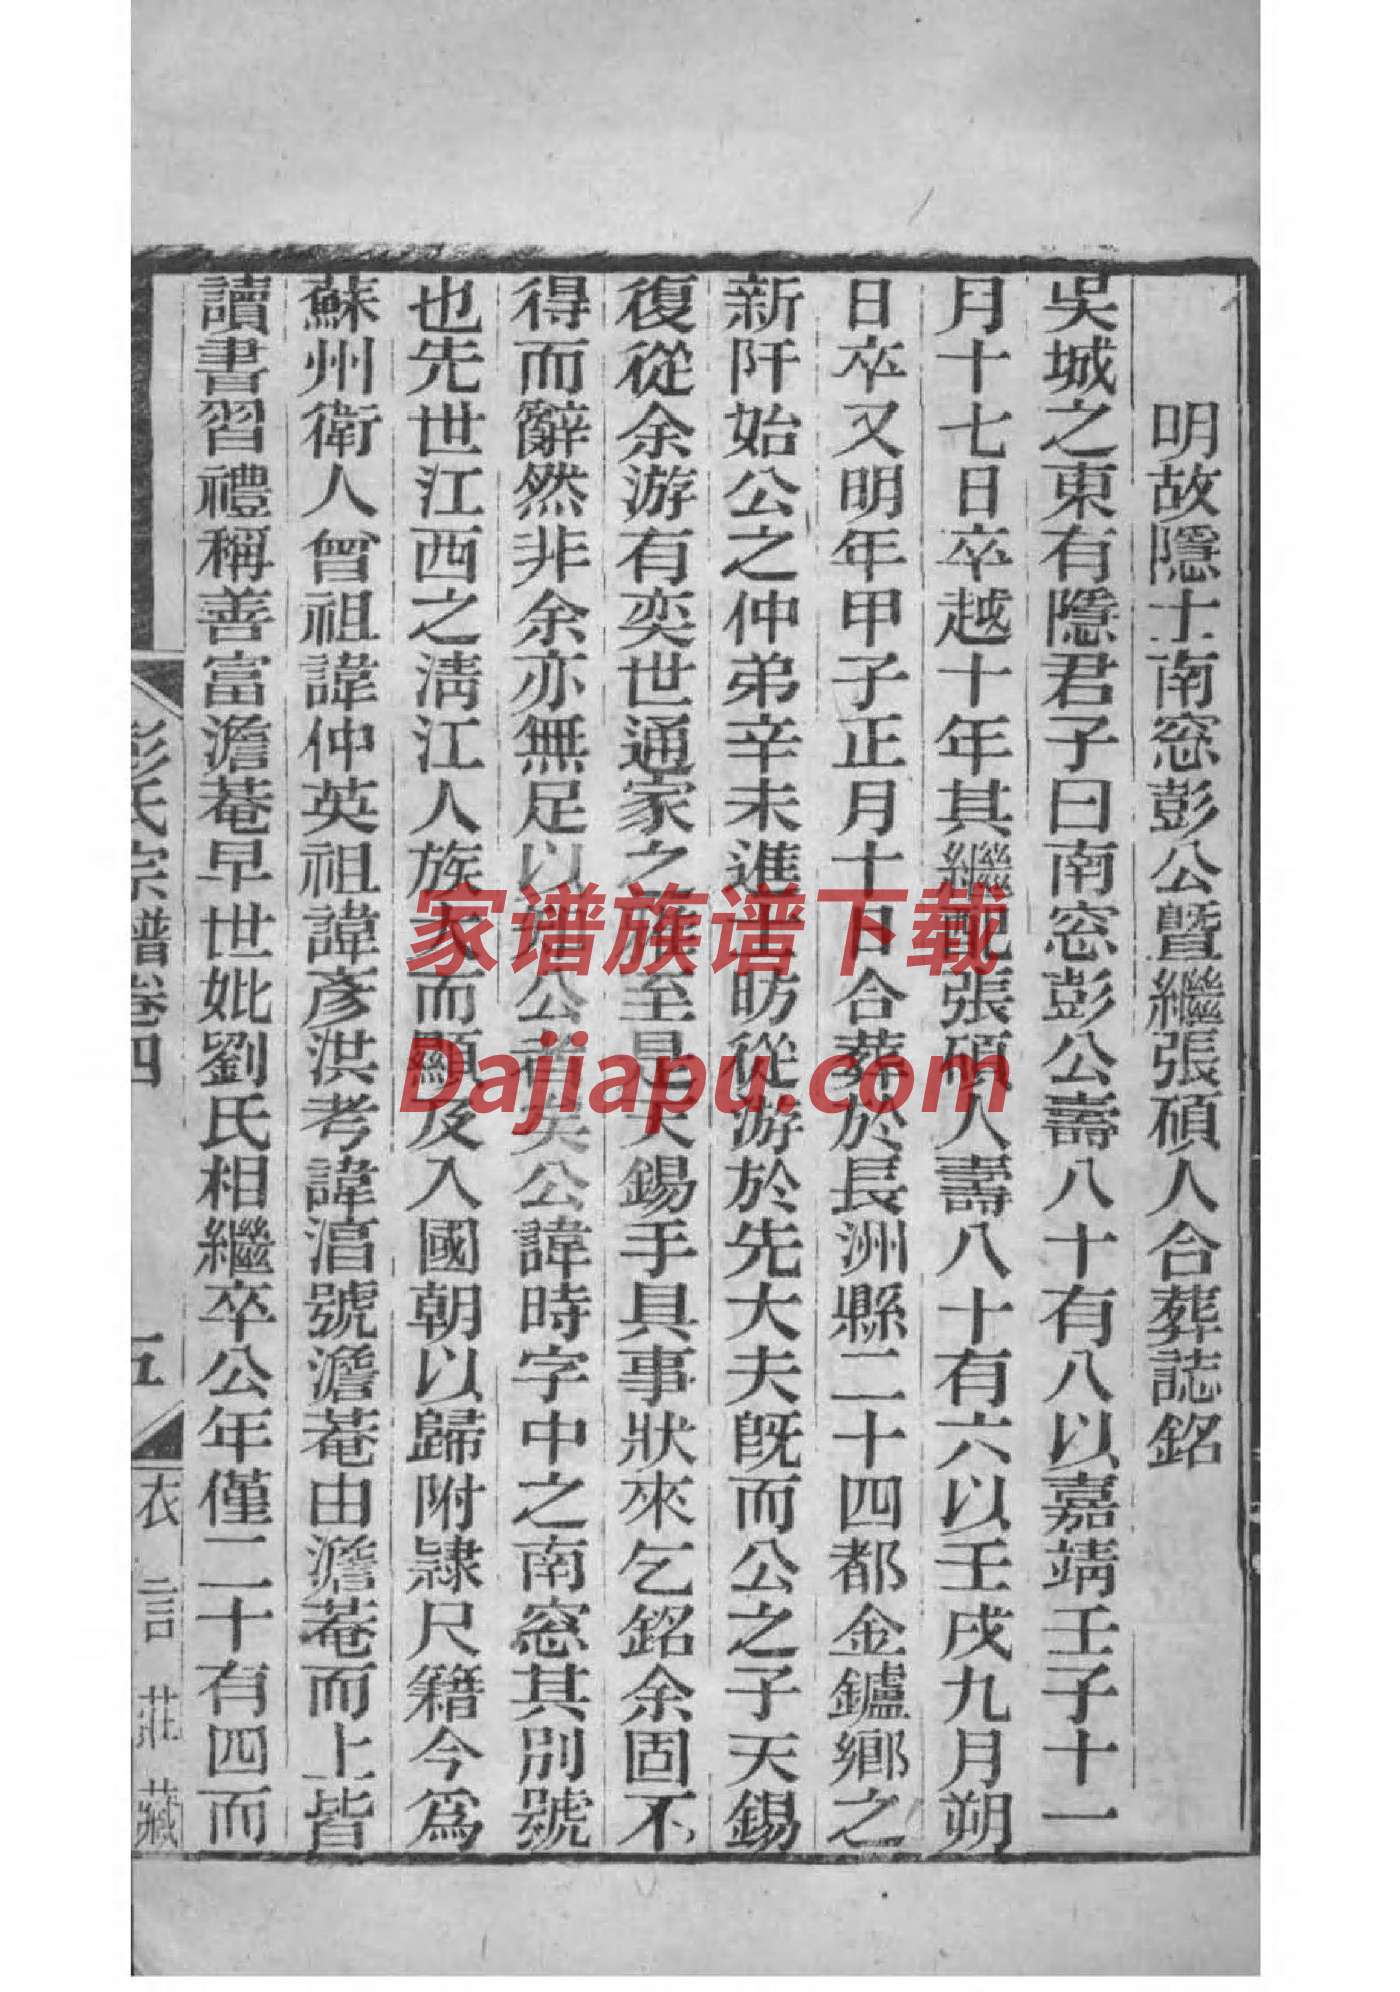 明故隱士南窓彭公曁繼張碩人合葬誌銘
吳城之東有隱君子曰南窓彭公壽八十有八以嘉靖壬子十一
月十七日卒越十年其繼配張碩人壽八十有六以壬戌九月朔
日卒又明年甲子正月十日合葬於長洲縣二十四都金鑪鄉之
新阡始公之仲弟辛未進士昉從游於先大夫旣而公之子天錫
復從余游有奕世通家之族至是天錫手具事狀來乞銘余固不
得而辭然非余亦無足以知公者矣公諱時字中之南窓其別號
也先世江西之淸江人族大而顯及入國朝以歸附隷尺籍今爲
蘇州衛人曾祖諱仲英祖諱彥洪考諱淐號澹菴由澹菴而上皆
讀書習禮稱善富澹菴早世妣劉氏相繼卒公年僅二十有四而
彭氏宗譜卷四
五
衣言莊藏
家谱族谱下载
Dajiapu.com